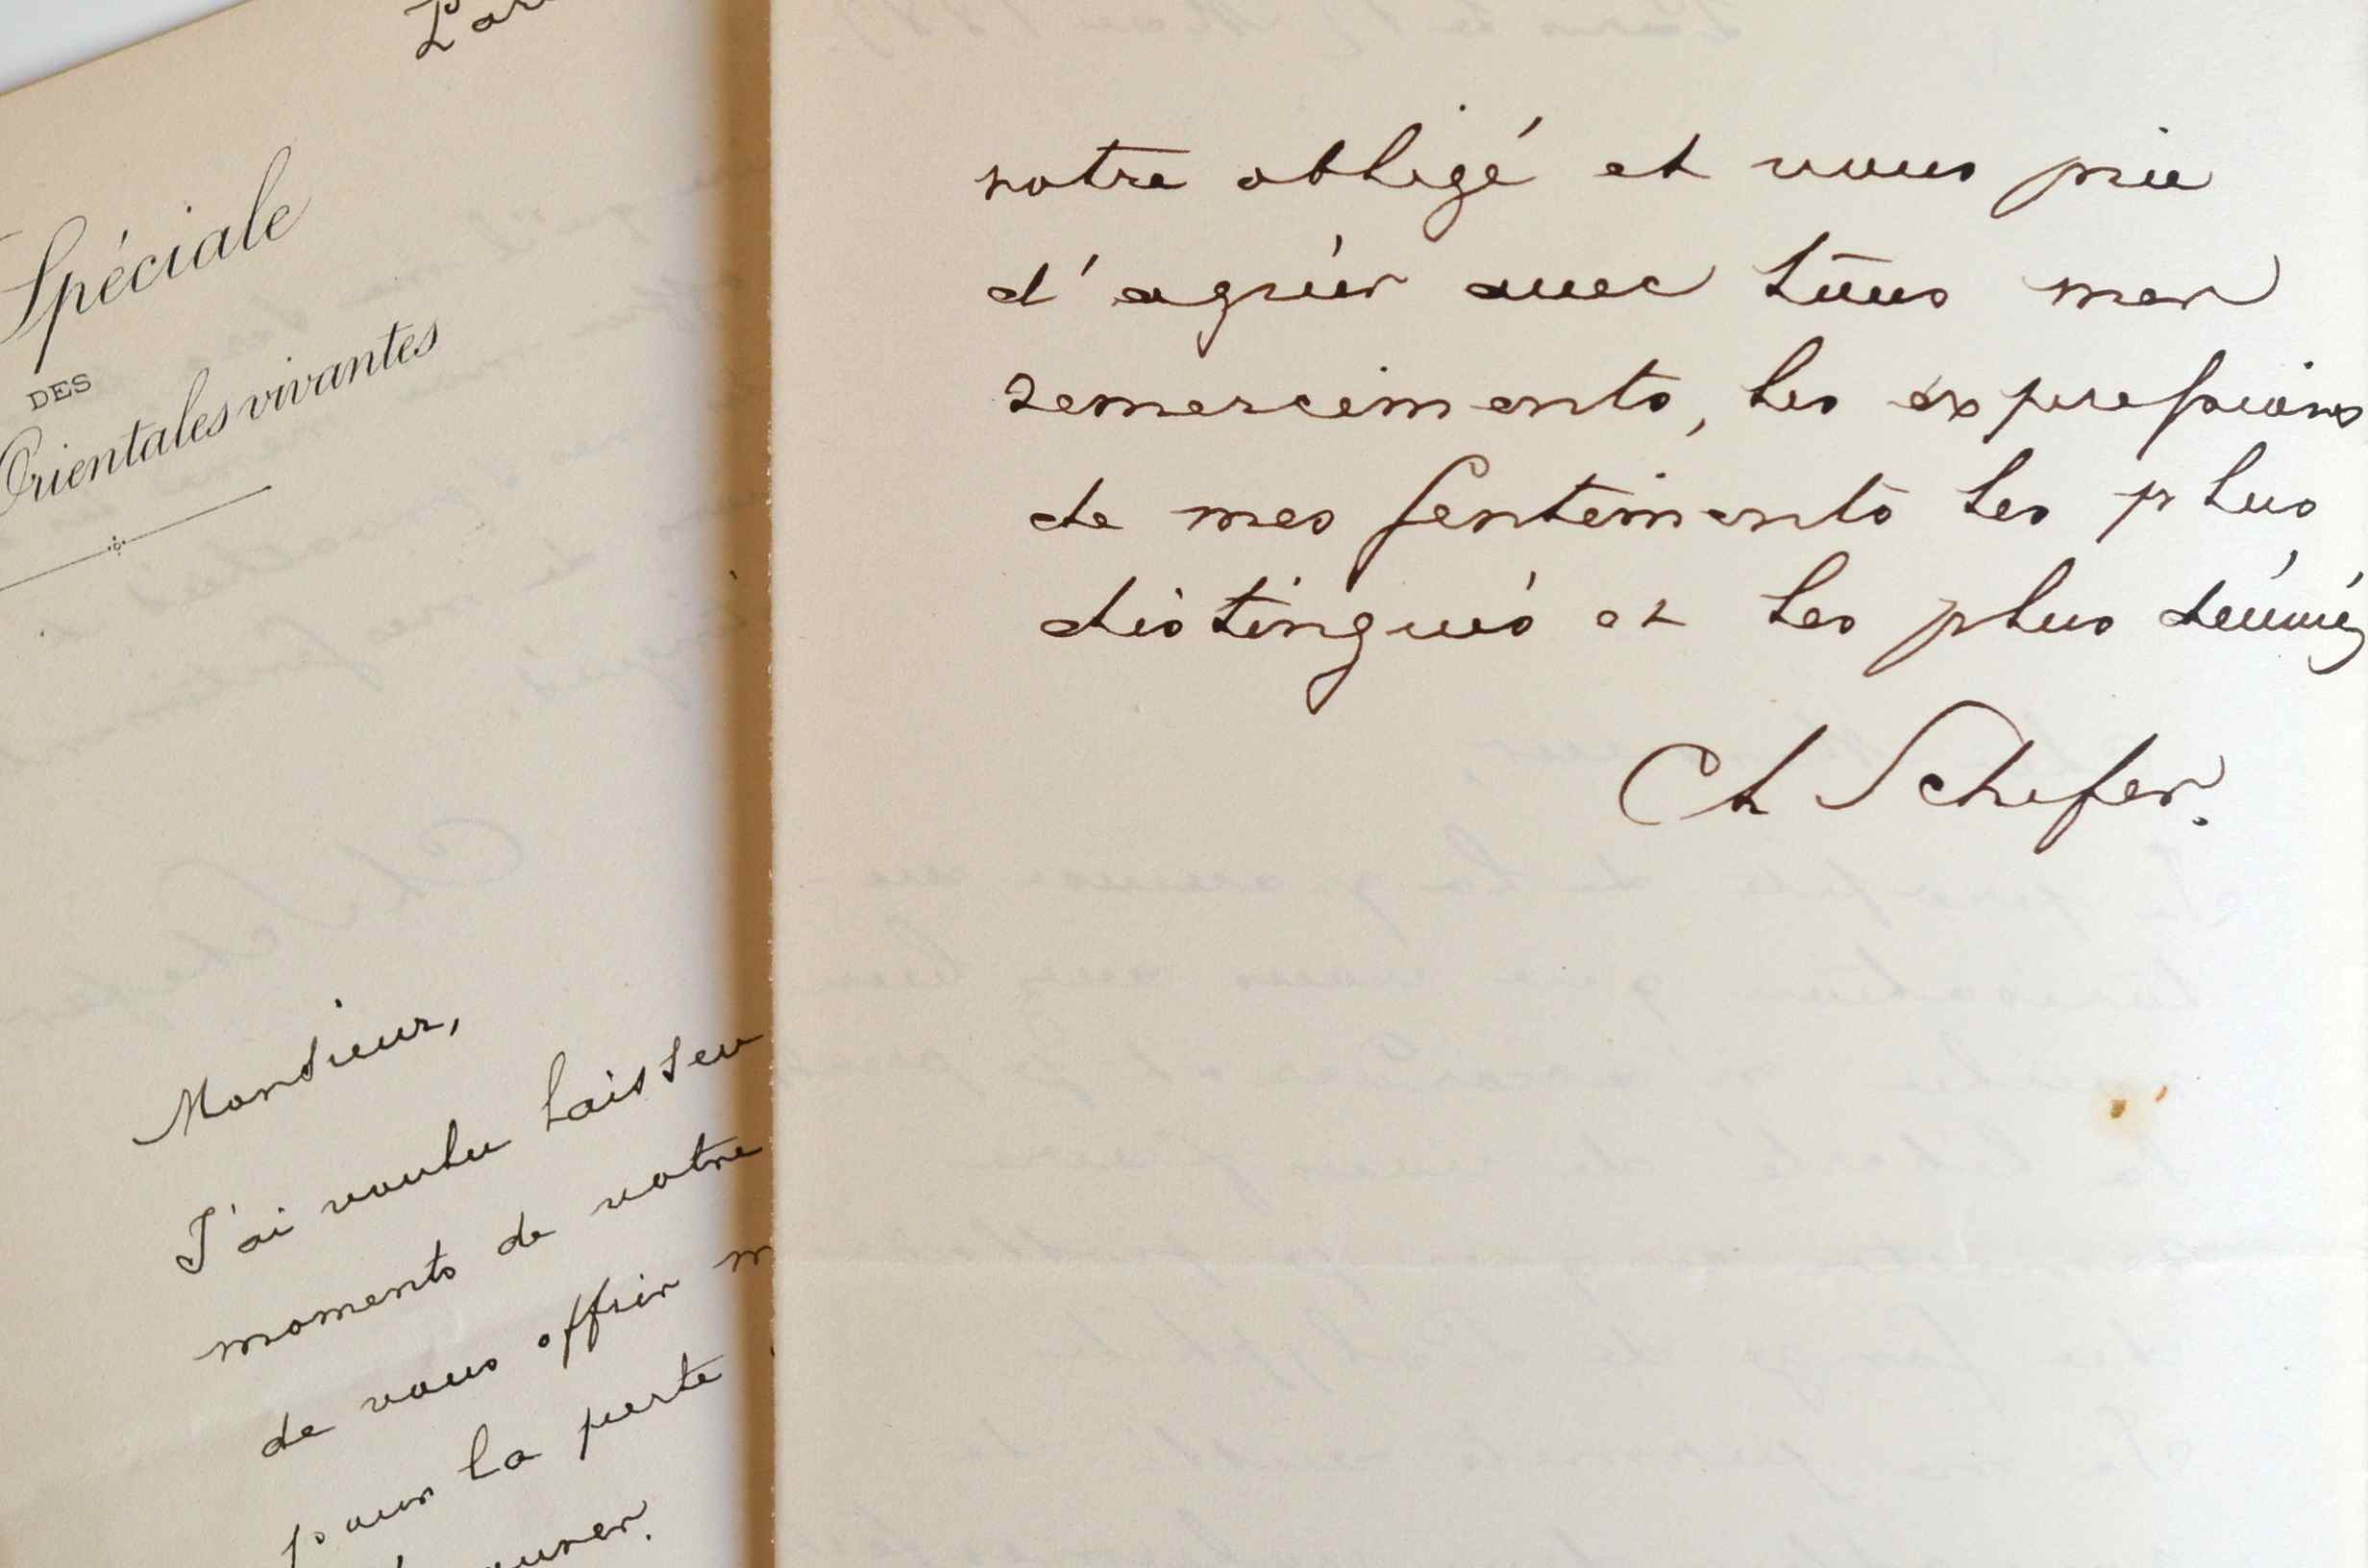 Spéciale
DES
Orientales vivantes
Monsieur,
J'ai voulu laisser
moments de votre
de vous offrir m
pour la perte
votre obligé et vous prie
d'agréer avec tous mes
remerciments, les expressions
de mes sentiments les plus
distingués et les plus dévoués
Ch Schefer.